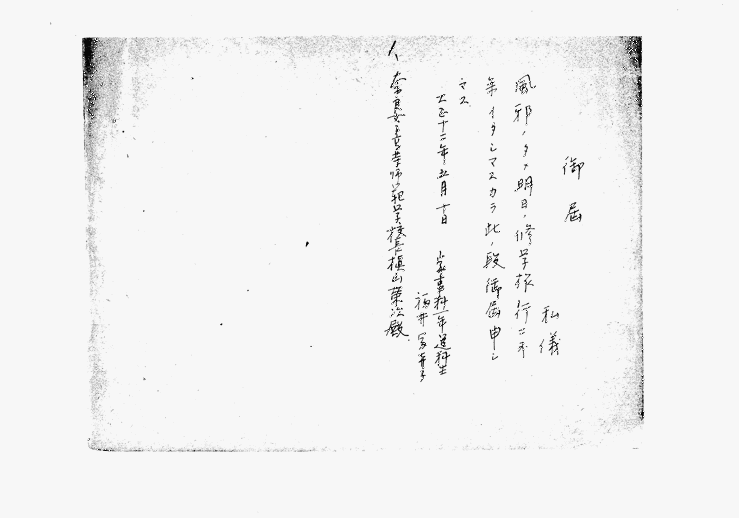 御届
私儀
風邪ノタメ明日ノ修学旅行ニ不
参イタシマスカラ此ノ段御届申シ
マス
大正十二年五月十日
家事科一年選科生
福井
奈良女子高等師範学校長槇山榮次殿